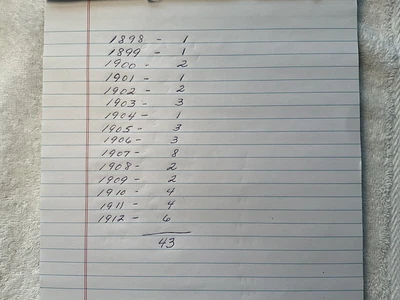 1898 - 1
1899 - 1
1900 - 2
1901 - 1
1902 - 2
1903 - 3
1904 - 1
1905 - 3
1906 - 3
1907 - 8
1908 - 2
1909 - 2
1910 - 4
1911 - 4
1912 - 6
43